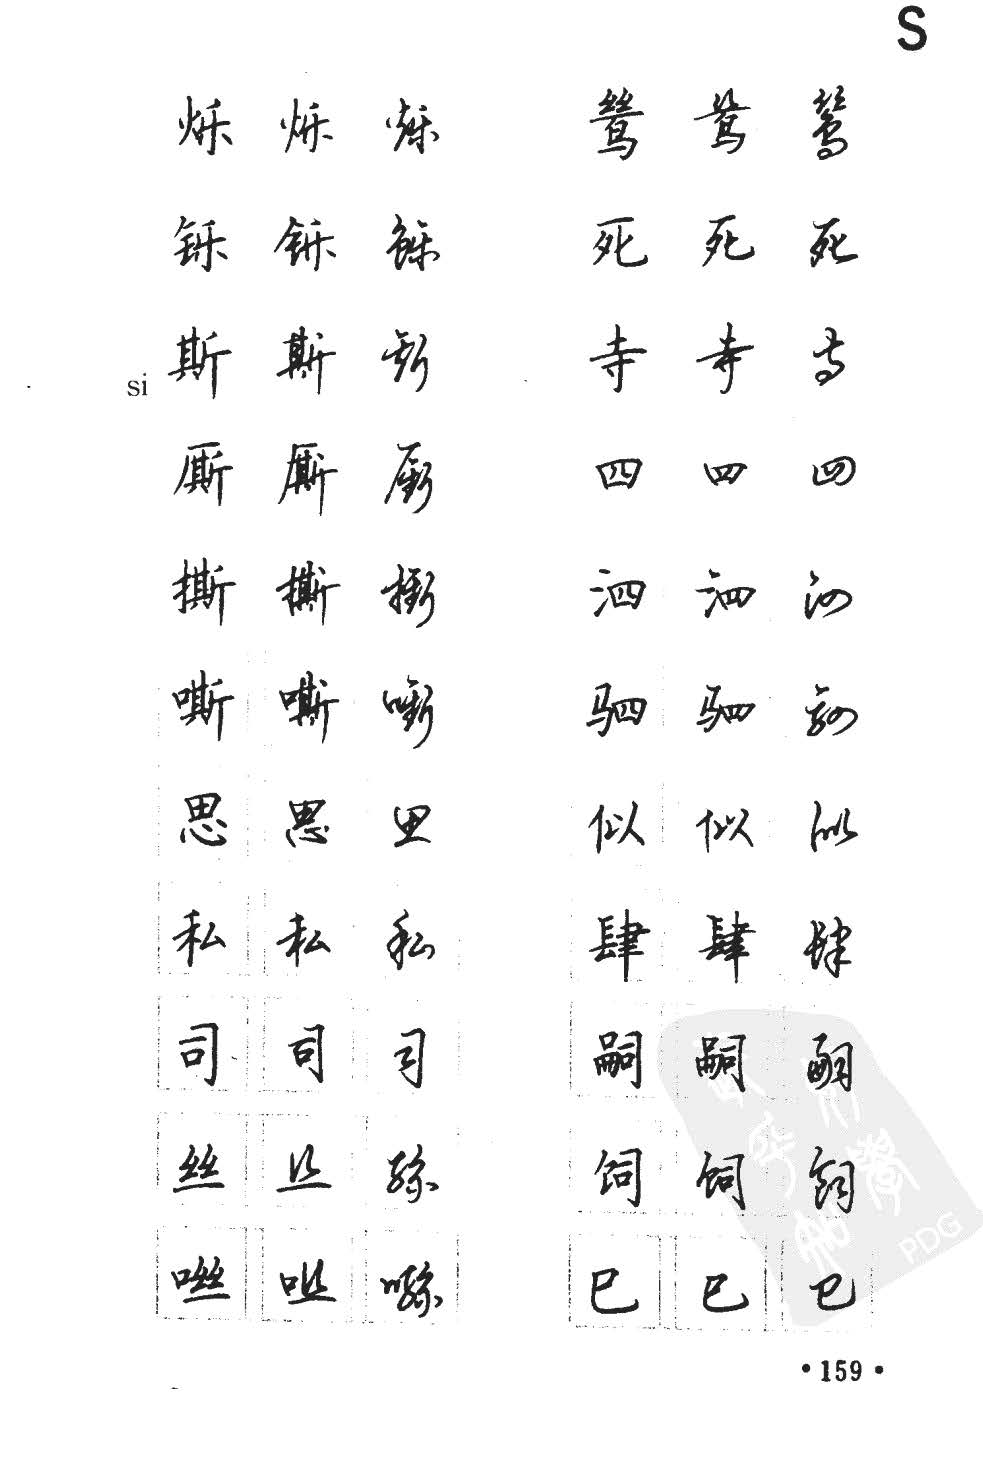 S
烁 烁 烁
铄 铄 铄
si 斯 斯 斯
厮 厮 厮
撕 撕 撕
嘶 嘶 嘶
思 思 思
私 私 私
司 司 司
丝 丝 丝
咝 咝 咝
鸶 鸶 鸶
死 死 死
寺 寺 寺
四 四 四
泗 泗 泗
驷 驷 驷
似 似 似
肆 肆 肆
嗣 嗣 嗣
饲 饲 饲
巳 巳 巳
PDG
·159·